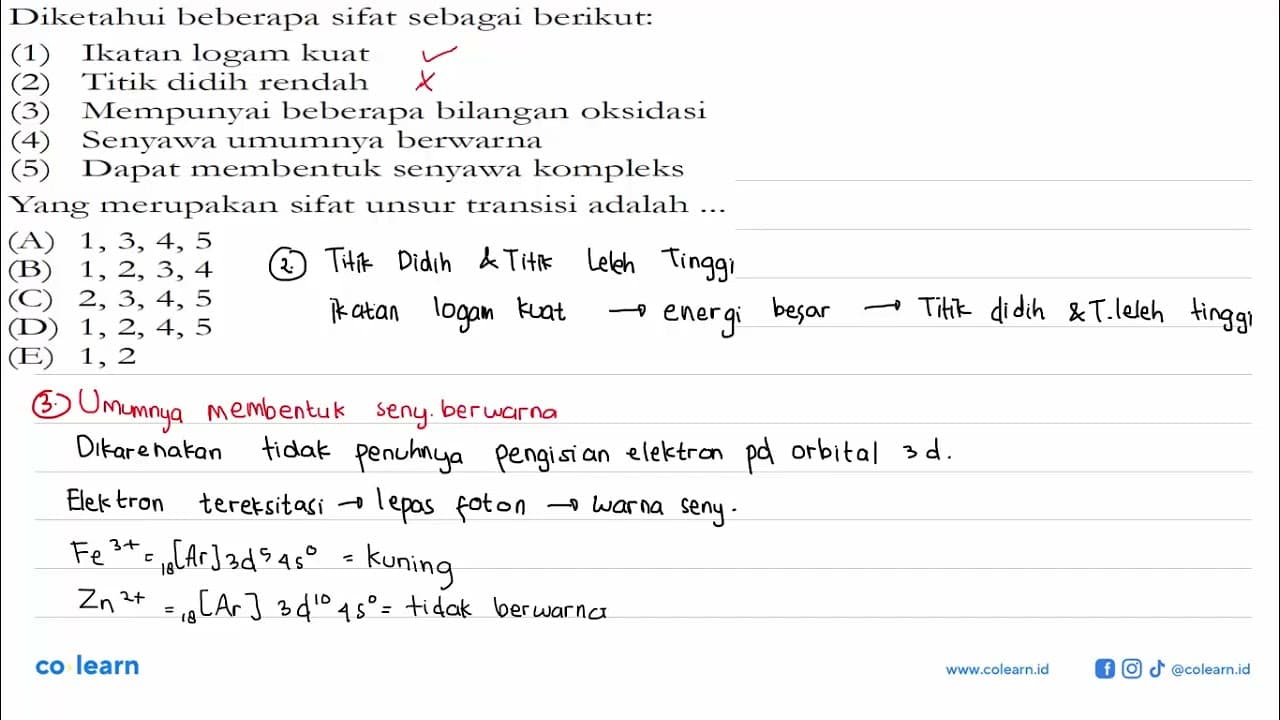 Diketahui beberapa sifat sebagai berikut:
(1) Ikatan logam kuat ✓
(2) Titik didih rendah ✗
(3) Mempunyai beberapa bilangan oksidasi
(4) Senyawa umumnya berwarna
(5) Dapat membentuk senyawa kompleks
Yang merupakan sifat unsur transisi adalah ...
(A) 1, 3, 4, 5
(B) 1, 2, 3, 4
(C) 2, 3, 4, 5
(D) 1, 2, 4, 5
(E) 1, 2
2. Titik Didih & Titik Leleh Tinggi
Ikatan logam kuat → energi besar → Titik didih & T.leleh tinggi
3. Umumnya membentuk seny. berwarna
Dikarenakan tidak penuhnya pengisian elektron pd orbital 3d.
Elektron tereksitasi → lepas foton → warna seny.
Fe³⁺ = ₁₈[Ar] 3d⁵ 4s⁰ = kuning
Zn²⁺ = ₁₈[Ar] 3d¹⁰ 4s⁰ = tidak berwarna
co learn
www.colearn.id
@colearn.id